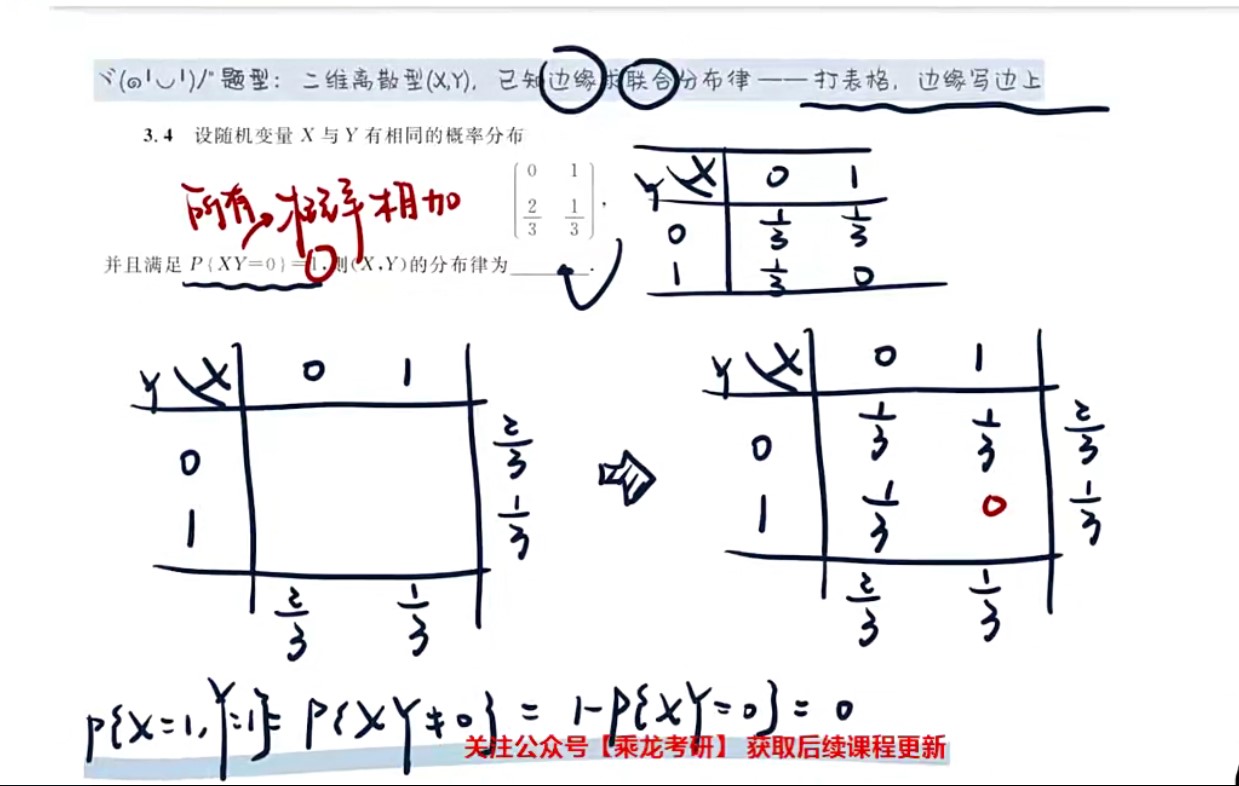 ヾ(◎'◡')/" 题型：二维离散型(X,Y)，已知边缘求联合分布律——打表格，边缘写边上
3.4 设随机变量 X 与 Y 有相同的概率分布
0 1
2/3 1/3 ,
所有概率相加
并且满足 P{XY=0}=1,则(X,Y)的分布律为______.
Y X 0 1
0 1/3 1/3
1 1/3 0
Y X 0 1
0 2/3
1 1/3
2/3 1/3
Y X 0 1
0 1/3 1/3 2/3
1 1/3 0 1/3
2/3 1/3
P{X=1,Y=1}=P{XY≠0}=1-P{XY=0}=0
关注公众号【乘龙考研】 获取后续课程更新